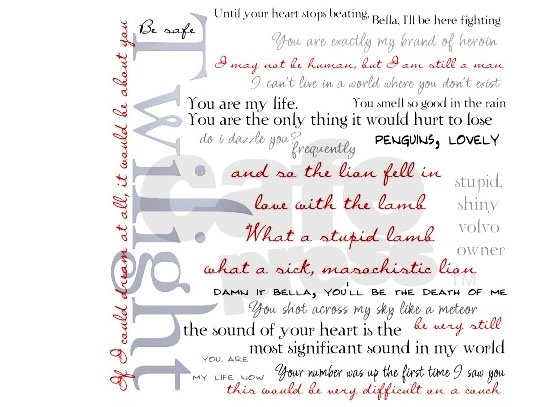 If I could dream at all, it would be about you
Be safe
Twilight
Until your heart stops beating,
Bella, I'll be here fighting
You are exactly my brand of heroin
I may not be human, but I am still a man
I can't live in a world where you don't exist
You are my life.
You smell so good in the rain
You are the only thing it would hurt to lose
do i dazzle you?
frequently
PENGUINS, LOVELY
and so the lion fell in
love with the lamb
What a stupid lamb
what a sick, masochistic lion
stupid,
shiny
volvo
owner
cafe
press™
DAMN IT BELLA, YOU'LL BE THE DEATH OF ME
You shot across my sky like a meteor
the sound of your heart is the
be very still
most significant sound in my world
YOU ARE
MY LIFE NOW
Your number was up the first time I saw you
this would be very difficult on a couch